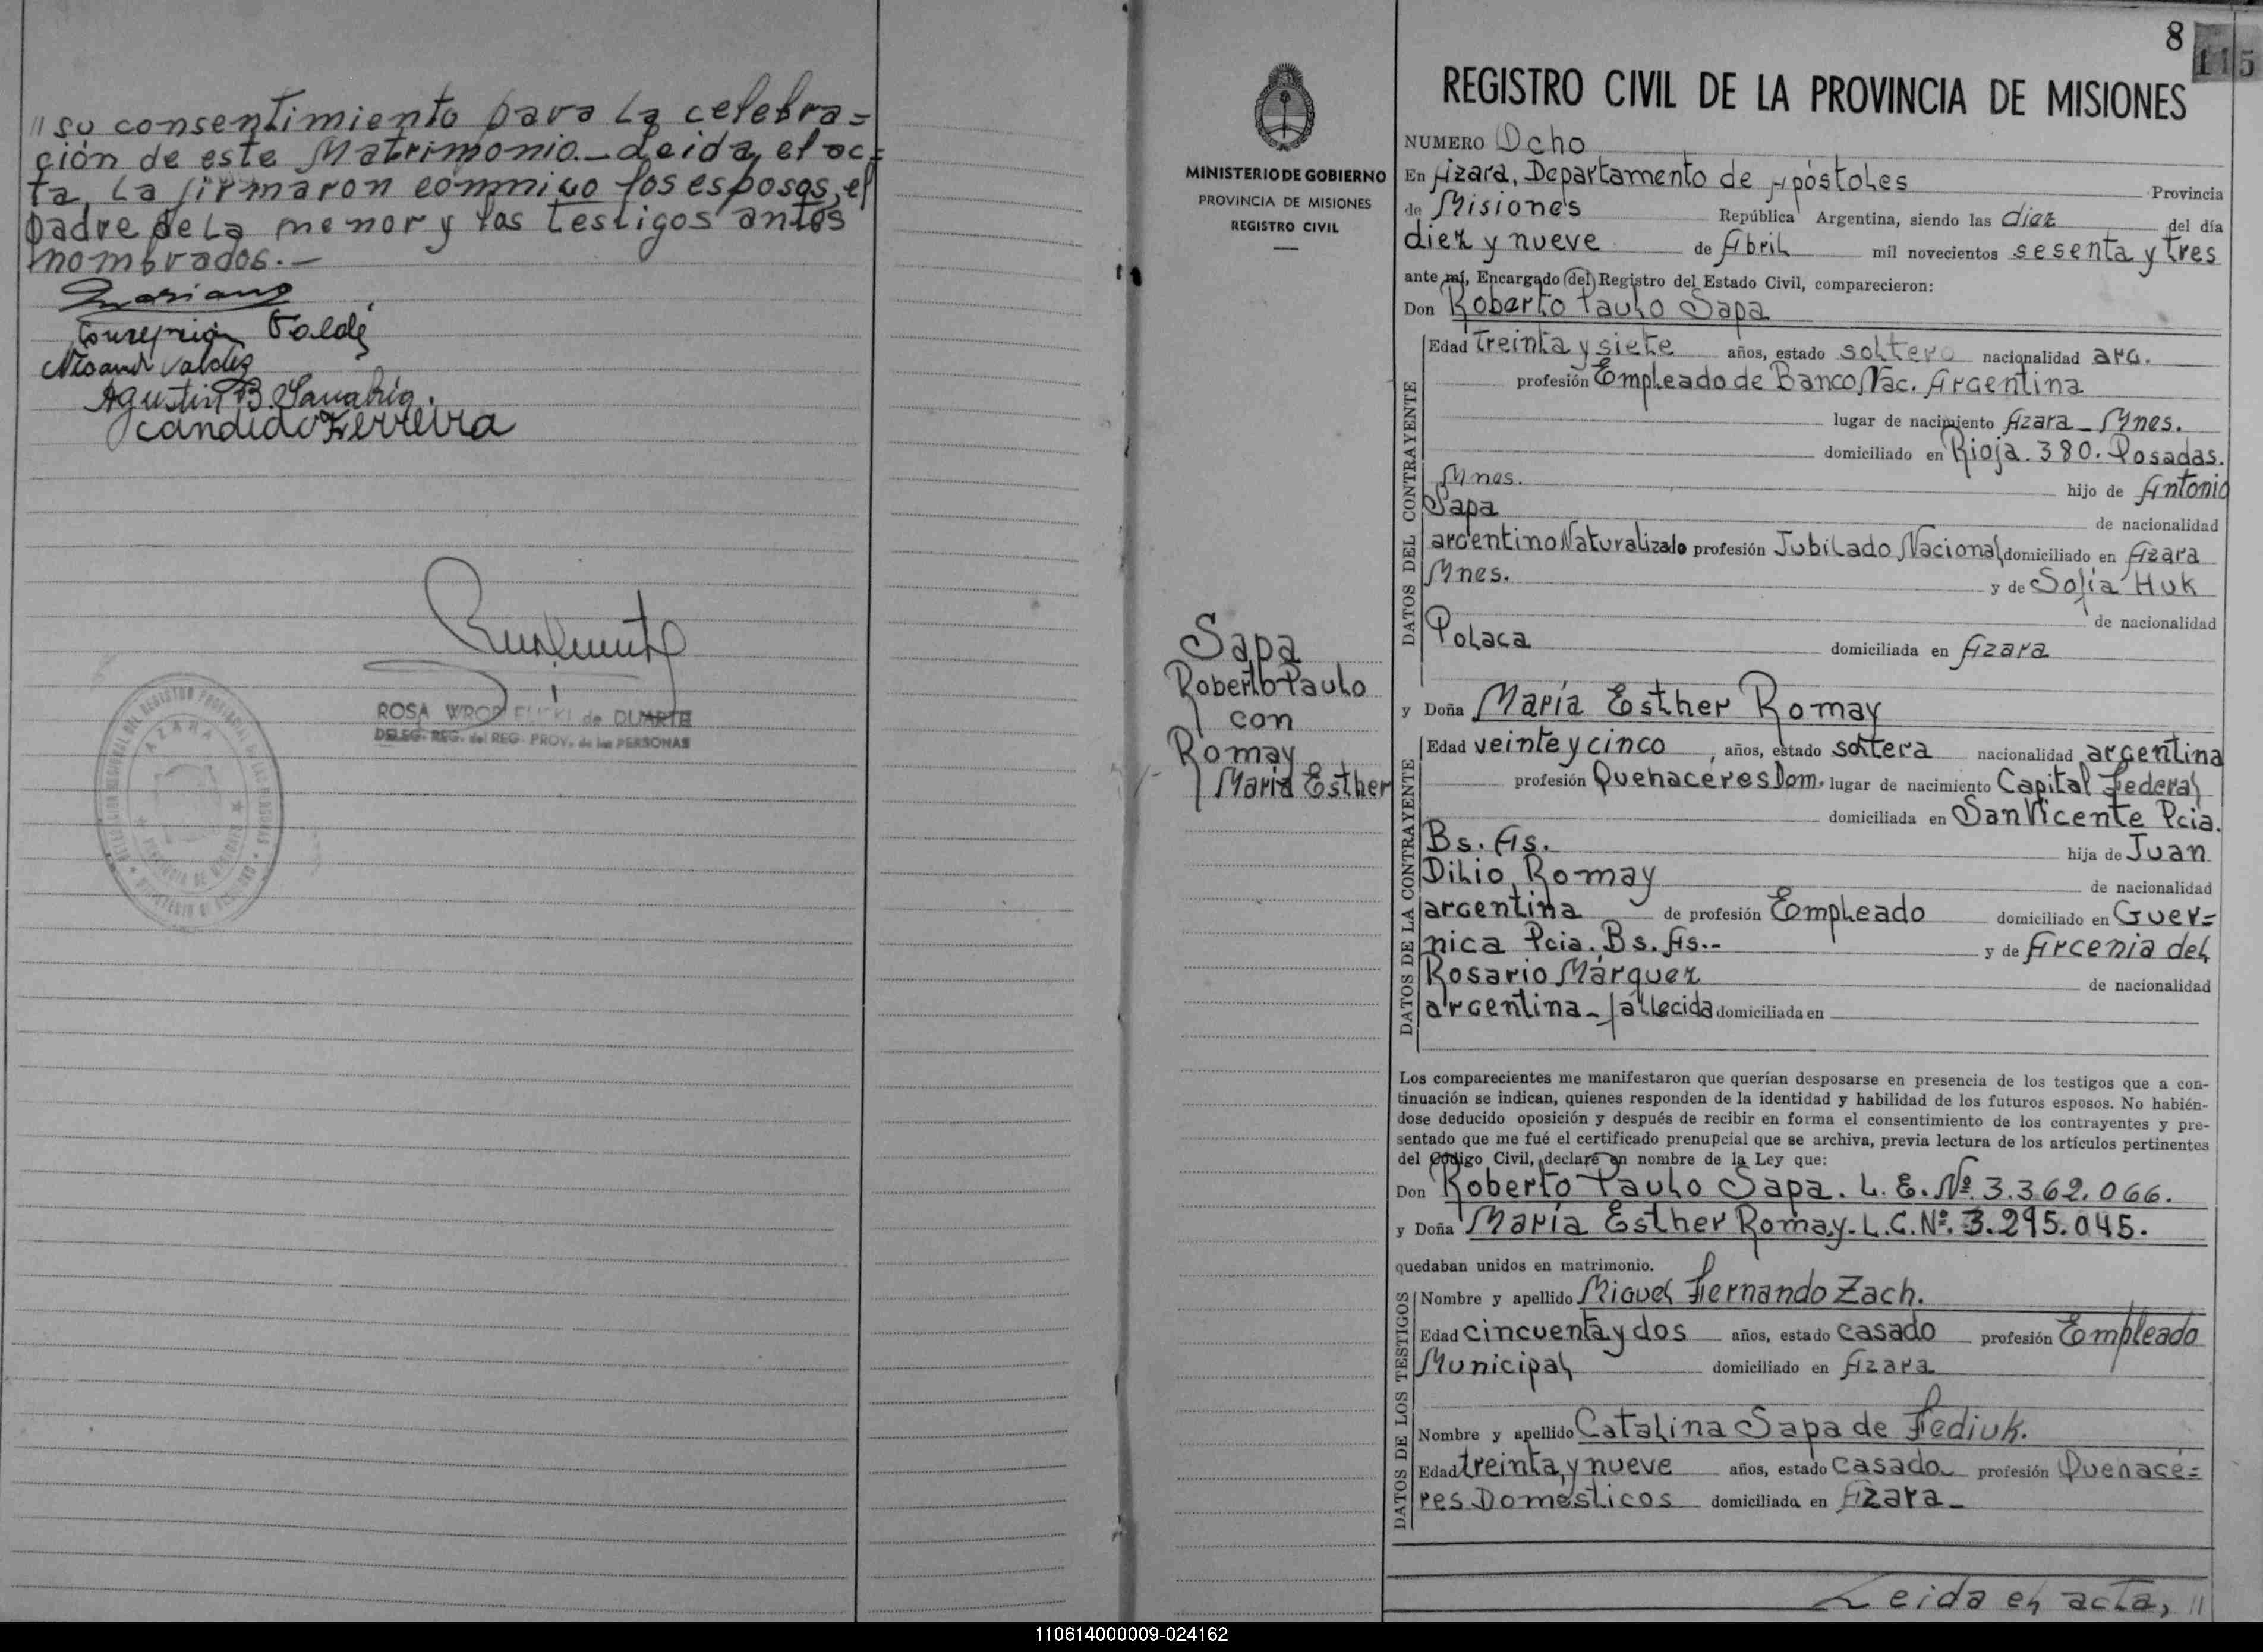 "su consentimiento para La celebra=
ción de este Matrimonio._ Leida, el ac=
ta, La firmaron conmigo los esposos, el
padre de La menor y los testigos antes
nombrados.-
Mariano
Concepción Valdéz
Valdez
Agustin B. Sanabria.
Candido Ferreira
ROSA WROBLEWSKI de DUARTE
DELEG. REG. del REG. PROV. de las PERSONAS
AZARA
8
115
MINISTERIO DE GOBIERNO
PROVINCIA DE MISIONES
REGISTRO CIVIL
Sapa
Roberto Paulo
con
Romay
Maria Esther
REGISTRO CIVIL DE LA PROVINCIA DE MISIONES
NUMERO Ocho
En Azara, Departamento de Apóstoles Provincia
de Misiones República Argentina, siendo las diez del día
diez y nueve de Abril mil novecientos sesenta y tres
ante mí, Encargado (del) Registro del Estado Civil, comparecieron:
Don Roberto Paulo Sapa
DATOS DEL CONTRAYENTE
Edad treinta y siete años, estado soltero nacionalidad arg.
profesión Empleado de Banco Nac. Argentina
lugar de nacimiento Azara - Mnes.
domiciliado en Rioja. 380. Posadas.
Mnes. hijo de Antonio
Sapa de nacionalidad
argentino Naturalizado profesión Jubilado Nacional domiciliado en Azara
Mnes. y de Sofía Huk
de nacionalidad
Polaca domiciliada en Azara
y Doña María Esther Romay
DATOS DE LA CONTRAYENTE
Edad veinte y cinco, años, estado soltera nacionalidad argentina
profesión Quehacéres Dom. lugar de nacimiento Capital Federal
domiciliada en San Vicente Pcia.
Bs. As. hija de Juan
Dilio Romay de nacionalidad
argentina de profesión Empleado domiciliado en Guer=
nica Pcia. Bs. As.- y de Arcenia del
Rosario Márquez de nacionalidad
argentina - fallecida domiciliada en
Los comparecientes me manifestaron que querían desposarse en presencia de los testigos que a con-
tinuación se indican, quienes responden de la identidad y habilidad de los futuros esposos. No habién-
dose deducido oposición y después de recibir en forma el consentimiento de los contrayentes y pre-
sentado que me fué el certificado prenupcial que se archiva, previa lectura de los artículos pertinentes
del Código Civil, declaré en nombre de la Ley que:
Don Roberto Paulo Sapa. L. E. Nº 3.362.066.
y Doña María Esther Romay. L.C. Nº. 3.295.045.
quedaban unidos en matrimonio.
DATOS DE LOS TESTIGOS
Nombre y apellido Miguel Fernando Zach.
Edad cincuenta y dos años, estado casado profesión Empleado
Municipal domiciliado en Azara
Nombre y apellido Catalina Sapa de Fediuk.
Edad treinta y nueve años, estado casada profesión Quehacé=
res Domésticos domiciliada en Azara -
Leida el acta, "
110614000009-024162